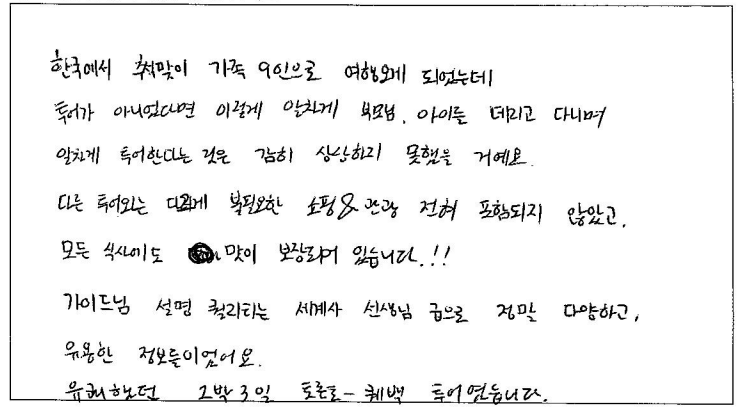 한국에서 추석맞이 가족 9인으로 여행오게 되었는데
투어가 아니었다면 이렇게 알차게 부모님, 아이들 데리고 다니며
알차게 투어한다는 것은 감히 상상하지 못했을 거예요.
다른 투어와는 다르게 불필요한 쇼핑&관광 전혀 포함되지 않았고,
모든 식사에도 맛이 보장되어 있습니다.!!
가이드님 설명 퀄리티는 세계사 선생님 급으로 정말 다양하고,
유용한 정보들이었어요.
유쾌했던 2박 3일 토론토-퀘백 투어였습니다.